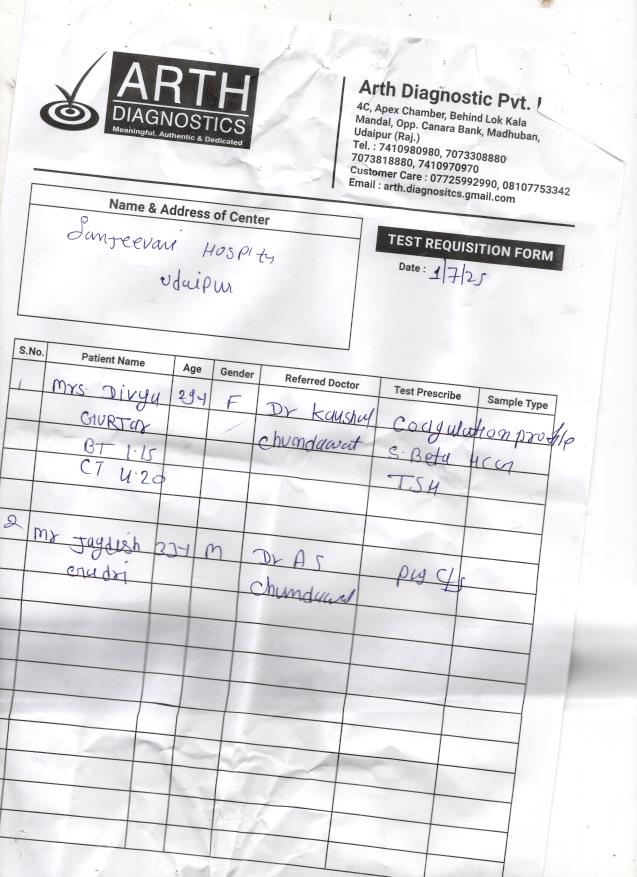 ARTH
DIAGNOSTICS
Meaningful, Authentic & Dedicated
Arth Diagnostic Pvt.
4C, Apex Chamber, Behind Lok Kala
Mandal, Opp. Canara Bank, Madhuban,
Udaipur (Raj.)
Tel. : 7410980980, 7073308880
7073818880, 7410970970
Customer Care : 07725992990, 08107753342
Email : arth.diagnositcs.gmail.com
Name & Address of Center
Sanjeevani HOSPITY
Udaipur
TEST REQUISITION FORM
Date : 1/7/25
S.No. Patient Name Age Gender Referred Doctor Test Prescribe Sample Type
1 Mrs. Divya 29Y F Dr Kaushal Coagulation profile
GURTAR Chundawat S. Beta HCG
BT 1.15 TSH
CT 4.20
2 Mr Jagdish 23Y M Dr A S Pus C/s
Chundawat